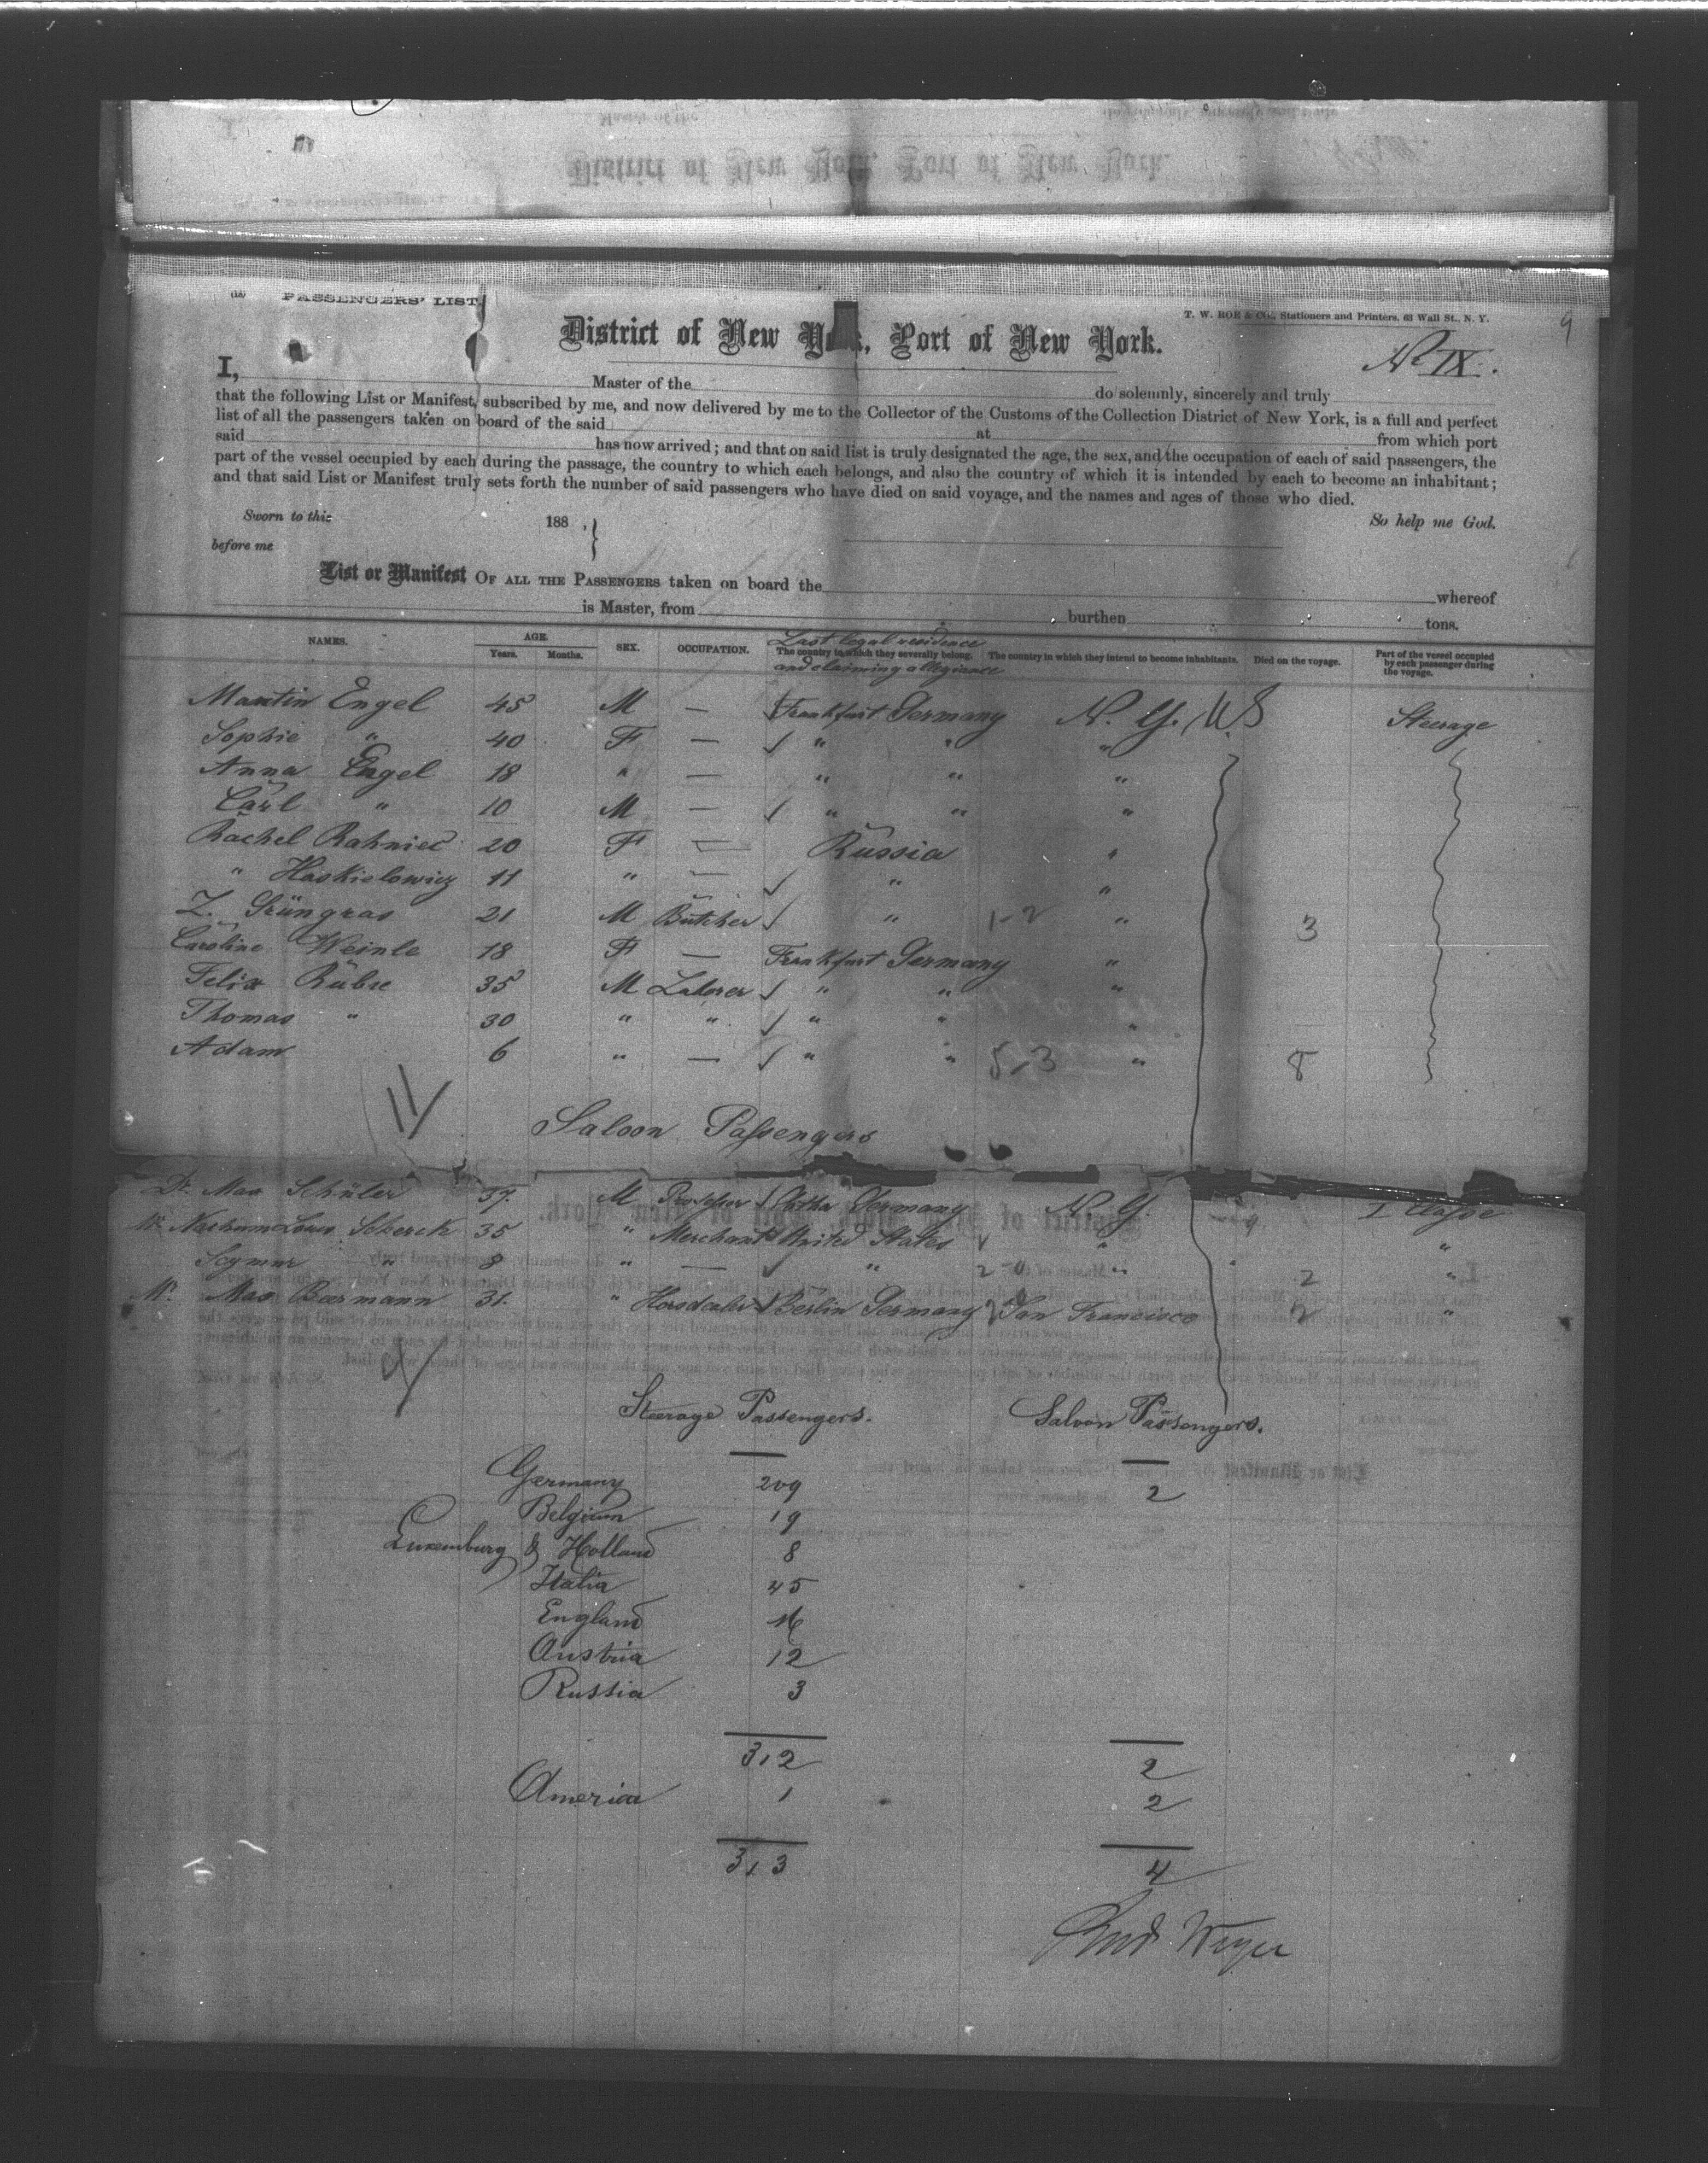 (18) PASSENGERS' LIST.
T. W. ROE & CO., Stationers and Printers, 63 Wall St., N. Y.
9
District of New York, Port of New York.
No IX.
I, Master of the do solemnly, sincerely and truly
that the following List or Manifest, subscribed by me, and now delivered by me to the Collector of the Customs of the Collection District of New York, is a full and perfect
list of all the passengers taken on board of the said at from which port
said has now arrived; and that on said list is truly designated the age, the sex, and the occupation of each of said passengers, the
part of the vessel occupied by each during the passage, the country to which each belongs, and also the country of which it is intended by each to become an inhabitant;
and that said List or Manifest truly sets forth the number of said passengers who have died on said voyage, and the names and ages of those who died.
Sworn to this 188 , So help me God.
before me
List or Manifest OF ALL THE PASSENGERS taken on board the whereof
is Master, from burthen tons.
Last legal residence
NAMES. AGE. Years. Months. SEX. OCCUPATION. The country to which they severally belong. The country in which they intend to become inhabitants. Died on the voyage. Part of the vessel occupied by each passenger during the voyage.
and claiming allegiance
Martin Engel 45 M — Frankfurt Germany N. Y. U.S Steerage
Sophie " 40 F — " " "
Anna Engel 18 " — " " "
Carl " 10 M — " " "
Rachel Rahniec 20 F — Russia "
" Haskielowicz 11 " — " "
Z. Grüngras 21 M Butcher " 1-2 " 3
Caroline Weinle 18 F — Frankfurt Germany "
Felix Rübre 35 M Laborer " " "
Thomas " 30 " " " " "
Adam 6 " — " " 5,3 " 8
11
Saloon Passengers
Dr. Max Schüler 37. M Professor Germany N. Y. I Classe
35 " Merchant United States " "
" 8 " — " 2-0 " 2 "
Mr. Max Beermann 31. " Berlin Germany San Francisco 2 "
Steerage Passengers. Saloon Passengers.
Germany 209 2
Belgium 19
Luxemburg & Holland 8
Italia 45
England 16
Austria 12
Russia 3
312 2
America 1 2
313 4